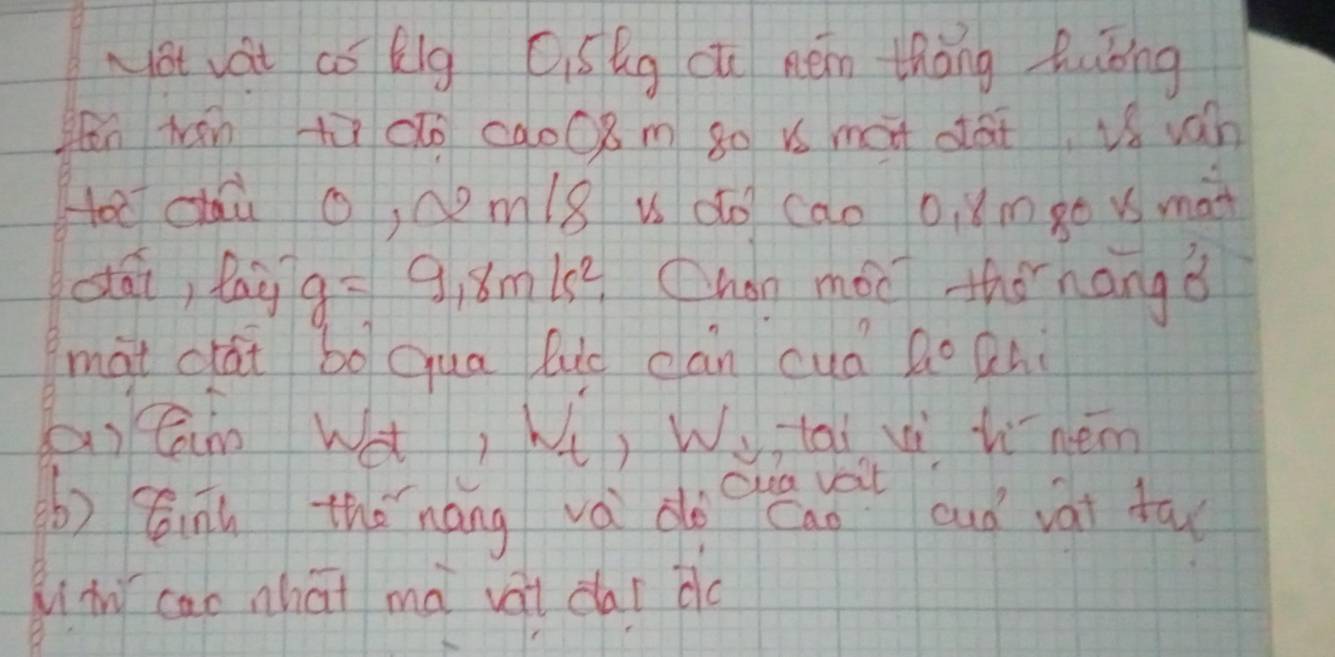 Một vật có klg 0,5kg đc ném thẳng hướng
lên trên từ độ cao 0,8 m so vs mặt đất. vs vận
tốc đầu m/s vs độ cao 0,8m so vs mặt
đất, lấy g = 9,8m/s². Chọn mốc thế năng ở
mặt đất bỏ qua lực cản của ko khí
a) tìm Wđ, Wt, W, tại vị trí ném
của vật
b) tính thế năng và độ cao của vật tại
vị trí cao nhất mà vật đạt đc